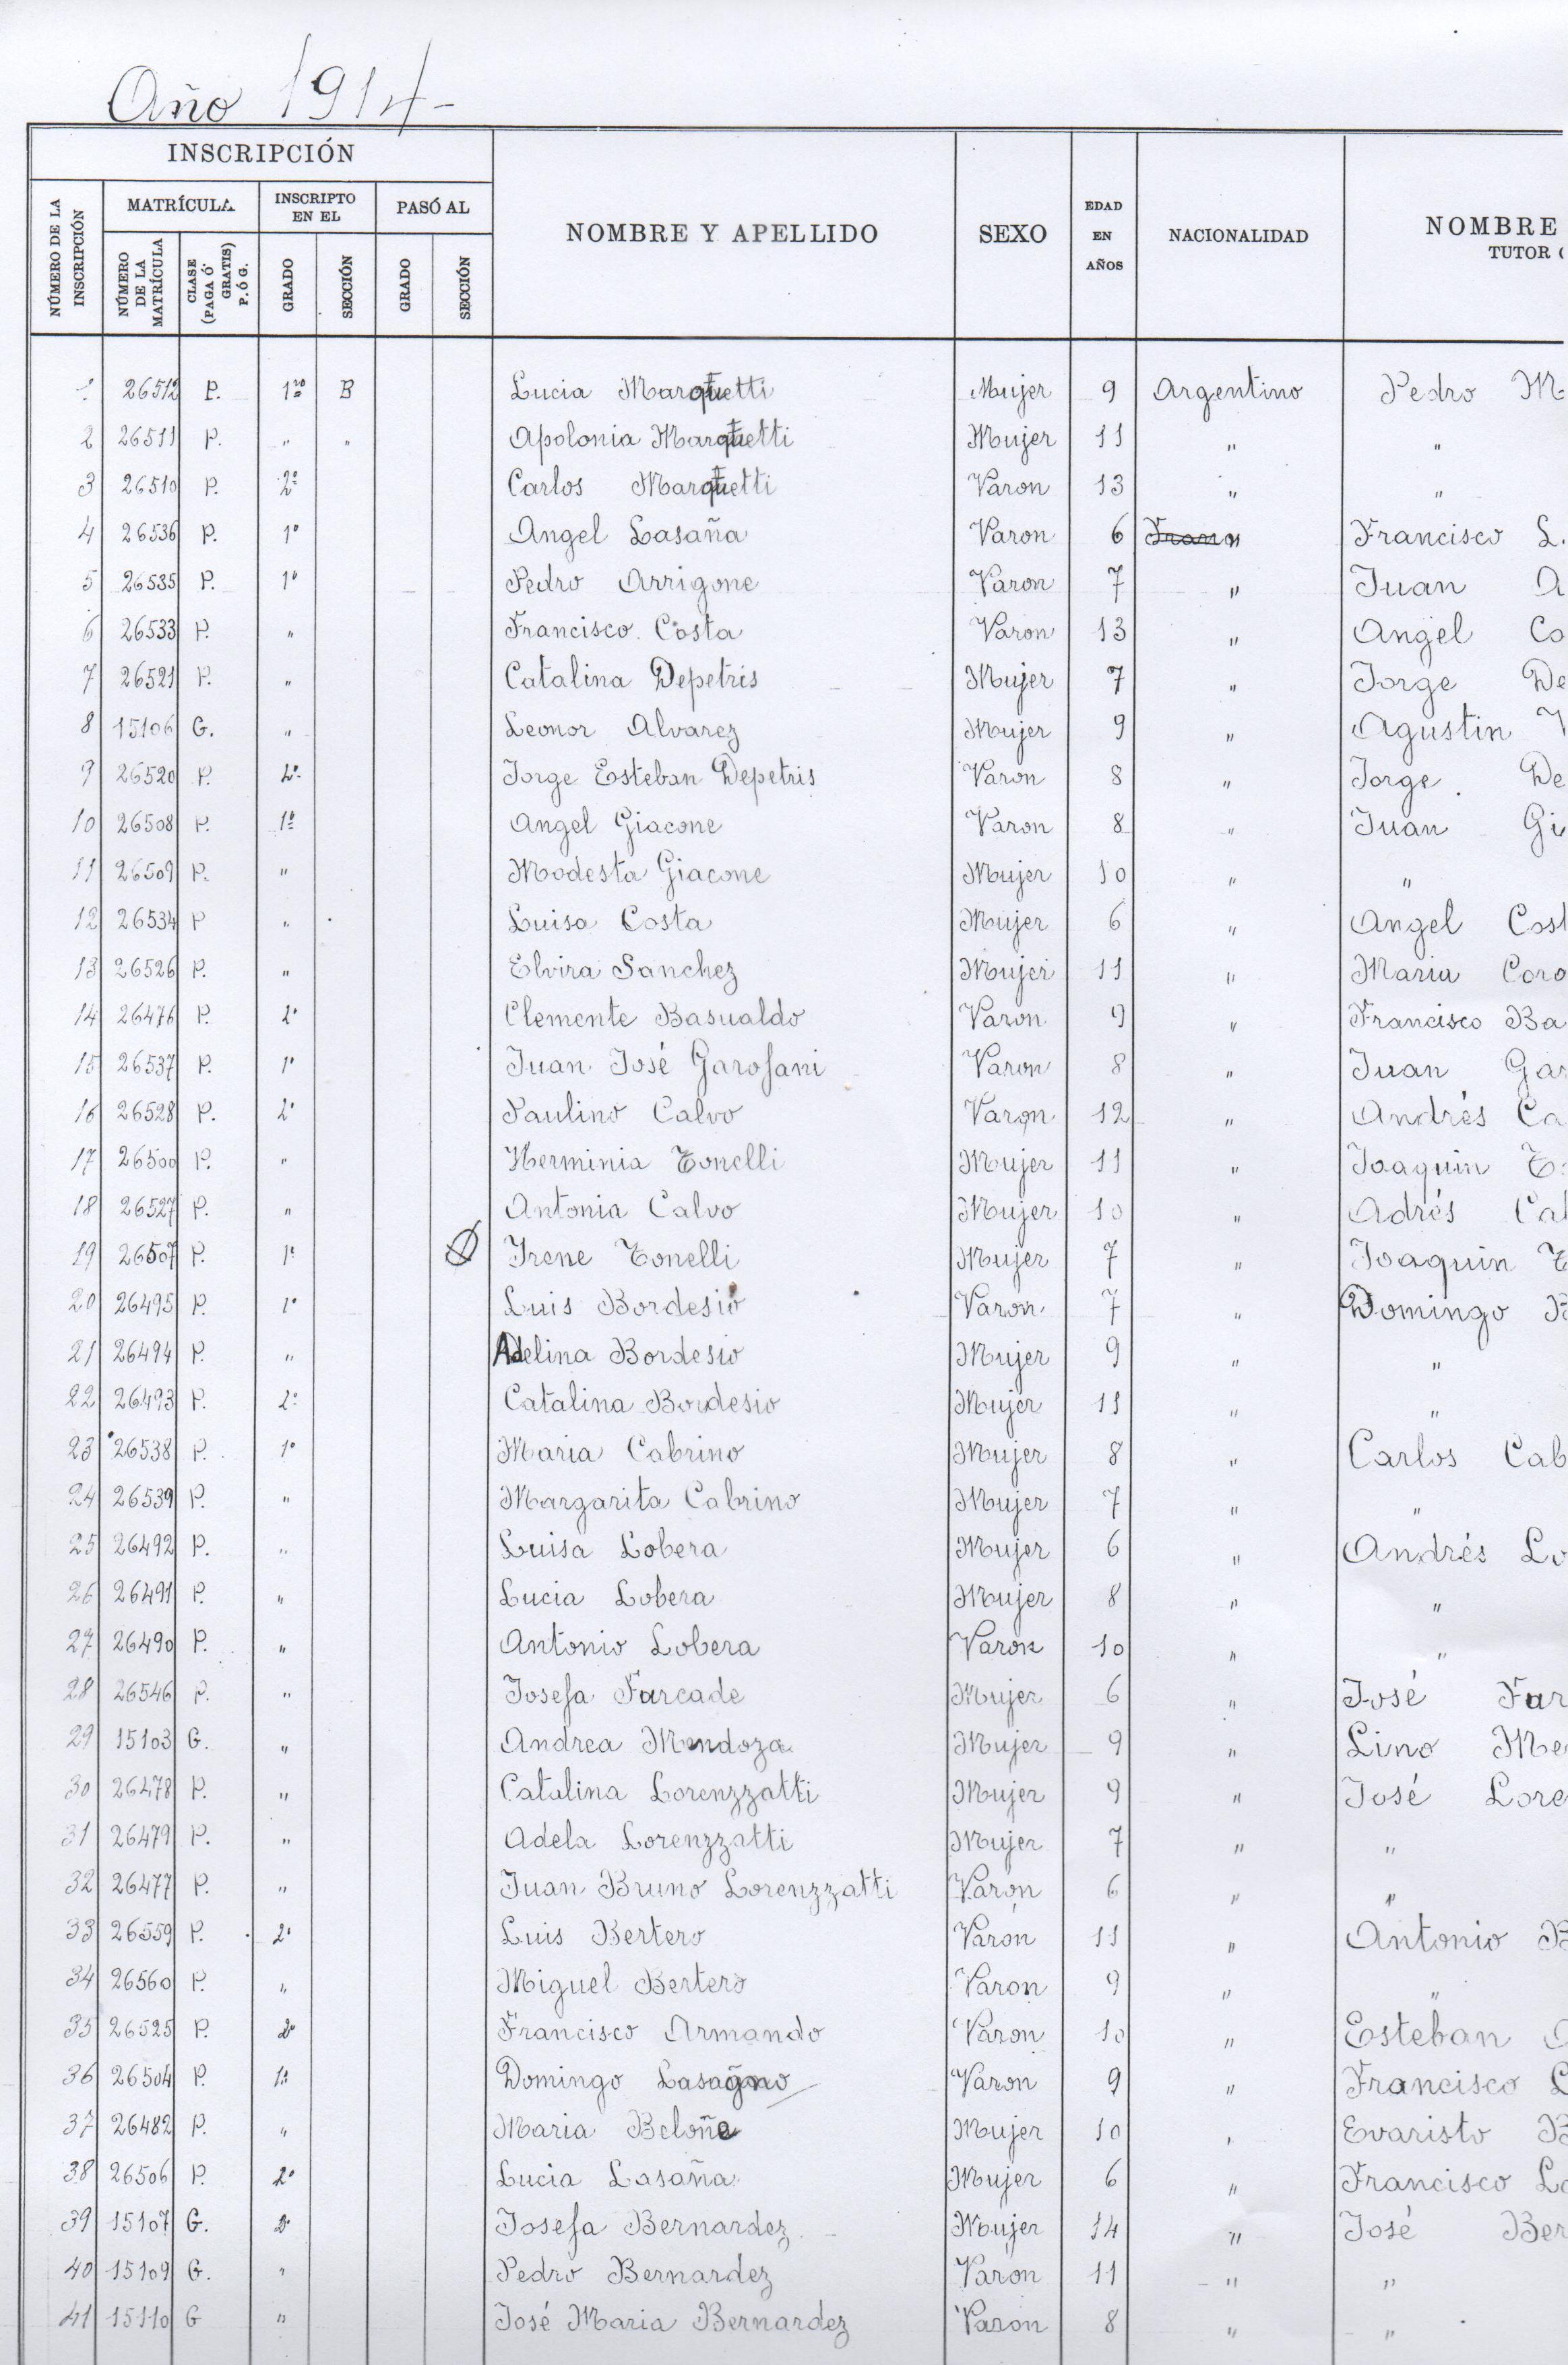 Año 1914-
INSCRIPCIÓN
NÚMERO DE LA INSCRIPCIÓN MATRÍCULA INSCRIPTO EN EL PASÓ AL NOMBRE Y APELLIDO SEXO EDAD EN AÑOS NACIONALIDAD NOMBRE
TUTOR (
NÚMERO DE LA MATRÍCULA CLASE (PAGA Ó GRATIS) P. Ó G. GRADO SECCIÓN GRADO SECCIÓN
1 26512 P. 1ro B Lucia Marquetti Mujer 9 Argentino Pedro M
2 26511 P. " " Apolonia Marquetti Mujer 11 " "
3 26510 P. 2º Carlos Marquetti Varon 13 " "
4 26536 P. 1º Angel Lasaña Varon 6 " Francisco L.
5 26535 P. 1º Pedro Arrigone Varon 7 " Juan A
6 26533 P. " Francisco Costa Varon 13 " Angel Co
7 26521 P. " Catalina Depetris Mujer 7 " Jorge De
8 15106 G. " Leonor Alvarez Mujer 9 " Agustin
9 26520 P. 2º Jorge Esteban Depetris Varon 8 " Jorge De
10 26508 P. 1º Angel Giacone Varon 8 " Juan Gi
11 26509 P. " Modesta Giacone Mujer 10 " "
12 26534 P " Luisa Costa Mujer 6 " Angel Cost
13 26526 P. " Elvira Sanchez Mujer 11 " Maria Coro
14 26476 P. 2º Clemente Basualdo Varon 9 " Francisco Ba
15 26537 P. 1º Juan José Garofani Varon 8 " Juan Gar
16 26528 P. 2º Paulino Calvo Varon 12 " Andrés Ca
17 26500 P. " Herminia Tonelli Mujer 11 " Joaquin T
18 26527 P. " Antonia Calvo Mujer 10 " Adrés Cal
19 26507 P. 1º Irene Tonelli Mujer 7 " Joaquin T
20 26495 P. 1º Luis Bordesio Varon 7 " Domingo B
21 26494 P. " Adelina Bordesio Mujer 9 " "
22 26493 P. 2º Catalina Bordesio Mujer 11 " "
23 26538 P. 1º Maria Cabrino Mujer 8 " Carlos Cab
24 26539 P. " Margarita Cabrino Mujer 7 " "
25 26492 P. " Luisa Lobera Mujer 6 " Andrés Lo
26 26491 P. " Lucia Lobera Mujer 8 " "
27 26490 P. " Antonio Lobera Varon 10 " "
28 26546 P. " Josefa Farcade Mujer 6 " José Far
29 15103 G. " Andrea Mendoza Mujer 9 " Lino Me
30 26478 P. " Catalina Lorenzzatti Mujer 9 " José Lore
31 26479 P. " Adela Lorenzzatti Mujer 7 " "
32 26477 P. " Juan Bruno Lorenzzatti Varon 6 " "
33 26559 P. 2º Luis Bertero Varon 11 " Antonio B
34 26560 P. " Miguel Bertero Varon 9 " "
35 26525 P. 2º Francisco Armando Varon 10 " Esteban A
36 26504 P. 1º Domingo Varon 9 " Francisco L
37 26482 P. " Maria Beloñe Mujer 10 " Evaristo B
38 26506 P. 2º Lucia Lasaña Mujer 6 " Francisco La
39 15107 G. 2º Josefa Bernardez Mujer 14 " José Ber
40 15109 G. " Pedro Bernardez Varon 11 " "
41 15110 G " José Maria Bernardez Varon 8 " "